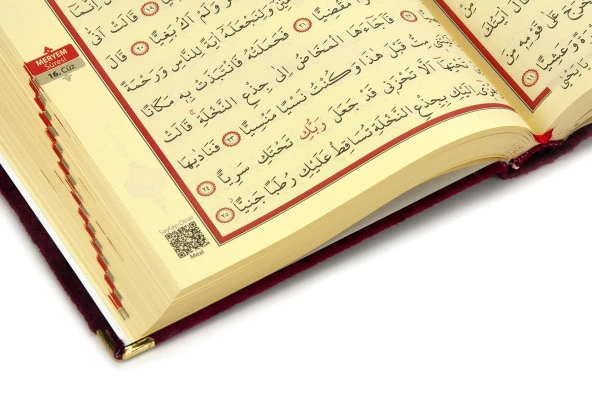 قَالَتْ اَنّٰى
وَلَمْ اَكُ بَغِيًّا ﴿٢٠﴾ قَالَ
وَلِنَجْعَلَهُٓ اٰيَةً لِلنَّاسِ وَرَحْمَةً
مَقْضِيًّا ﴿٢١﴾ فَحَمَلَتْهُ فَانْتَبَذَتْ بِهٖ مَكَانًا
﴿٢٢﴾ فَاَجَٓاءَهَا الْمَخَاضُ اِلٰى جِذْعِ النَّخْلَةِۚ قَالَتْ
مِتُّ قَبْلَ هٰذَا وَكُنْتُ نَسْيًا مَنْسِيًّا ﴿٢٣﴾ فَنَادٰيهَا
تَحْتِهَٓا اَلَّا تَحْزَنٖي قَدْ جَعَلَ رَبُّكِ تَحْتَكِ سَرِيًّا ﴿٢٤﴾
اِلَيْكِ بِجِذْعِ النَّخْلَةِ تُسَاقِطْ عَلَيْكِ رُطَبًا جَنِيًّا ﴿٢٥﴾
MERYEM
Sûresi
16. Cüz
Sayfayı Dinle
Meal
عَلٰى قَوْمِهٖ مِنَ
﴿١١﴾